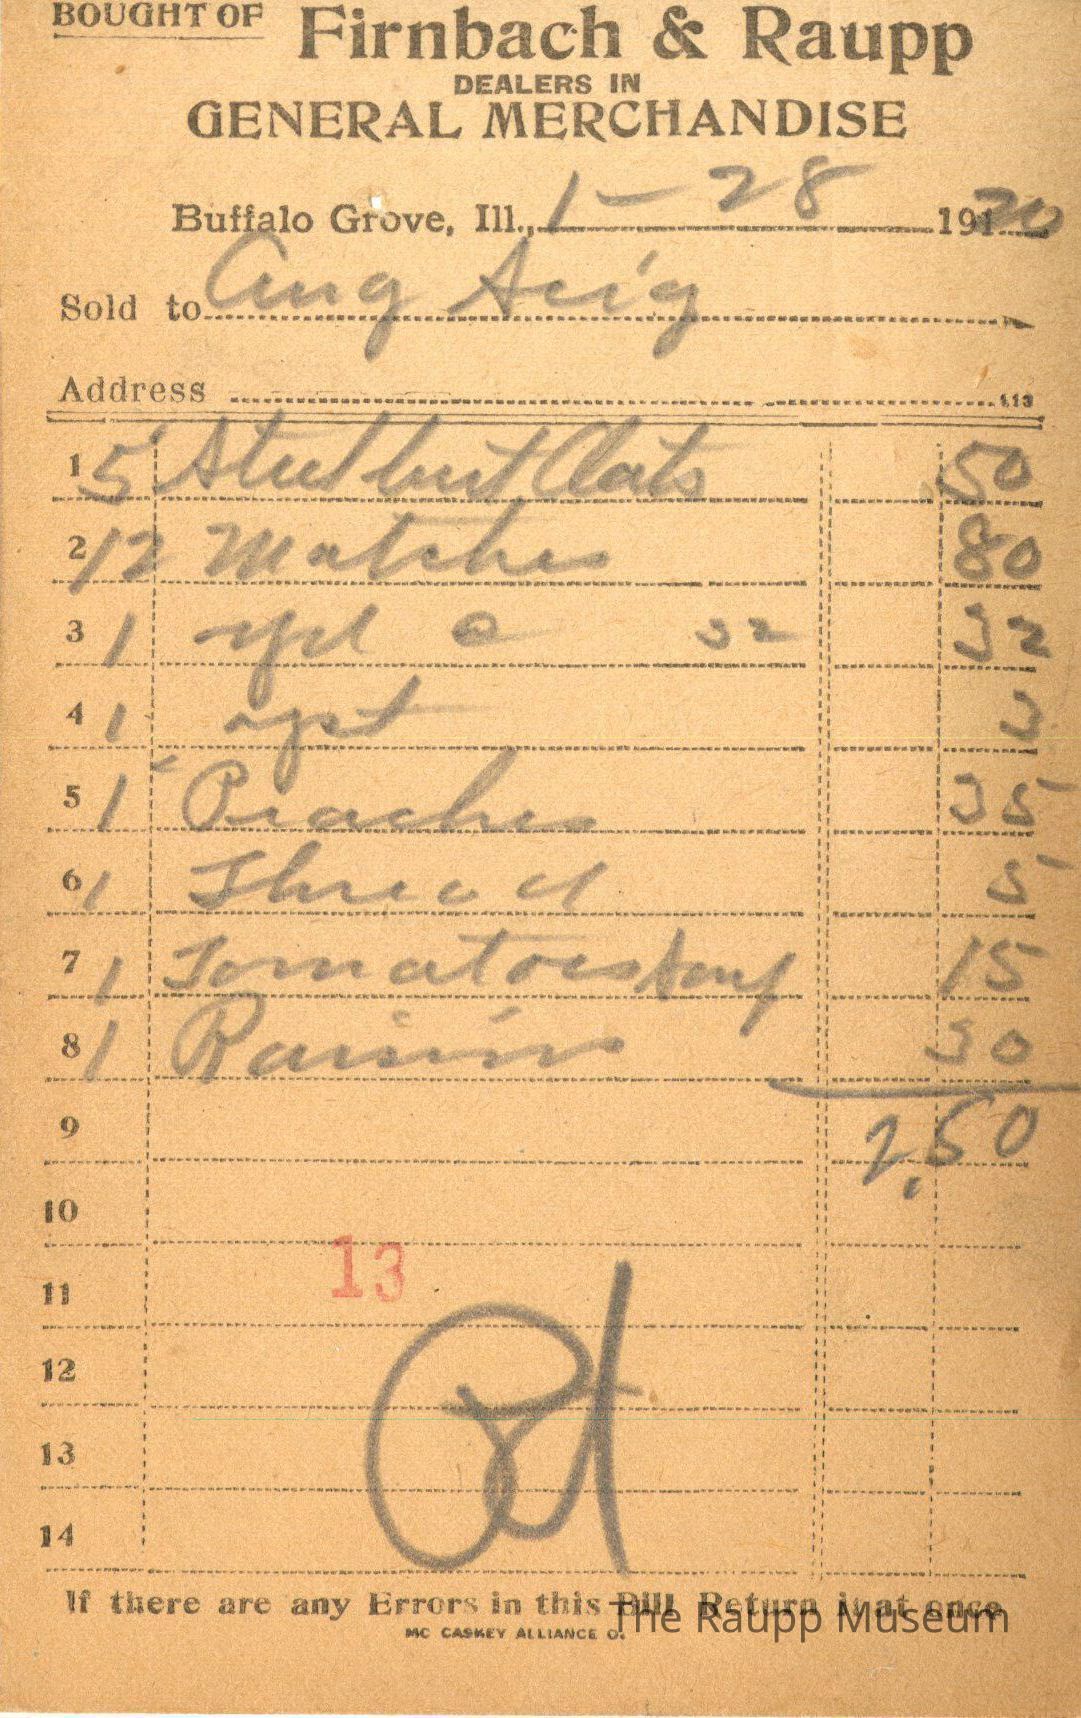 BOUGHT OF Firnbach & Raupp
DEALERS IN
GENERAL MERCHANDISE
Buffalo Grove, Ill., 1-28 1920
Sold to Aug Seig
Address 113
1 5 Steel Cut Oats 50
2 12 Matches 80
3 1 32 32
4 1 3
5 1 Peaches 35
6 1 Thread 5
7 1 Tomatoes Soup 15
8 1 Raisins 30
9 2.50
10
11 13
12
13
14
If there are any Errors in this Bill Return it at once
MC CASKEY ALLIANCE O.
The Raupp Museum